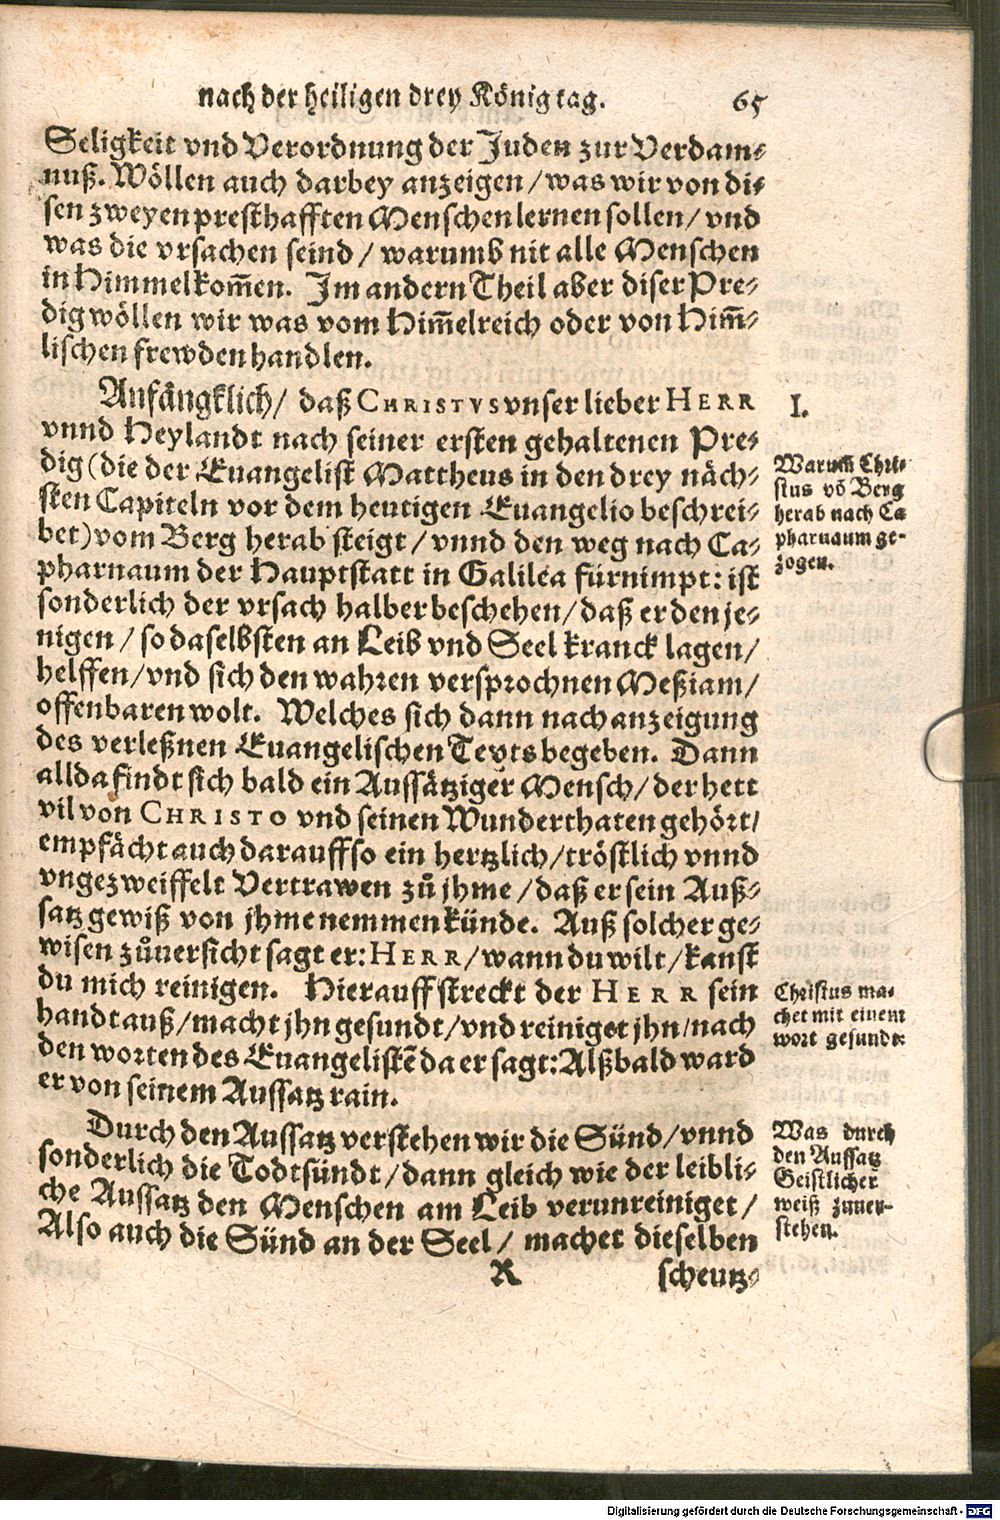 nach der heiligen drey König tag. 65
Seligkeit vnd Verordnung der Juden zur Verdam-
nuß. Wöllen auch darbey anzeigen/ was wir von di-
sen zweyen presthafften Menschen lernen sollen/ vnd
was die vrsachen seind/ warumb nit alle Menschen
in Himmel kom̃en. Im andern Theil aber diser Pre-
dig wöllen wir was vom Him̃elreich oder von Him̃-
lischen frewden handlen.
Anfängklich/ daß CHRISTVS vnser lieber HERR
vnnd Heylandt nach seiner ersten gehaltenen Pre-
dig (die der Euangelist Mattheus in den drey näch-
sten Capiteln vor dem heutigen Euangelio beschrei-
bet) vom Berg herab steigt/ vnnd den weg nach Ca-
pharnaum der Hauptstatt in Galilea fürnimpt: ist
sonderlich der vrsach halber beschehen/ daß er den je-
nigen/ so daselbsten an Leib vnd Seel kranck lagen/
helffen/ vnd sich den wahren versprochnen Meßiam/
offenbaren wolt. Welches sich dann nach anzeigung
des verleßnen Euangelischen Texts begeben. Dann
allda findt sich bald ein Aussätziger Mensch/ der hett
vil von CHRISTO vnd seinen Wunderthaten gehört/
empfächt auch darauff so ein hertzlich/ tröstlich vnnd
vngezweiffelt Vertrawen zů jhme/ daß er sein Auß-
satz gewiß von jhme nemmen künde. Auß solcher ge-
wisen zůuersicht sagt er: HERR/ wann du wilt/ kanst
du mich reinigen. Hierauff streckt der HERR sein
handt auß/ macht jhn gesundt/ vnd reiniget jhn/ nach
den worten des Euangelistē da er sagt: Alßbald ward
er von seinem Aussatz rain.
Durch den Aussatz verstehen wir die Sünd/ vnnd
sonderlich die Todtsündt/ dann gleich wie der leibli-
che Aussatz den Menschen am Leib verunreiniget/
Also auch die Sünd an der Seel/ machet dieselben
R scheutz-
I.
Warum̃ Chri-
stus vō Berg
herab nach Ca
pharnaum ge-
zogen.
Christus ma-
chet mit einem
wort gesundt.
Was durch
den Aussatz
Geistlicher
weiß zuuer-
stehen.
Digitalisierung gefördert durch die Deutsche Forschungsgemeinschaft - DFG